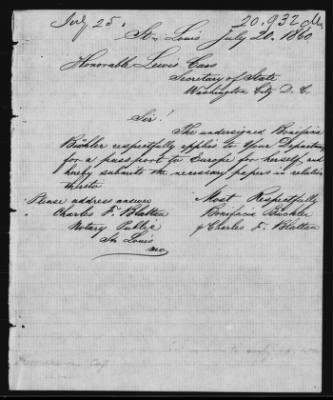 July 25.
20.932
St. Louis July 20. 1860
Honorable Lewis Cass
Secretary of State
Washington City D. C.
Sir!
The undersigned Bonifacia
Büchler respectfully applies to Your Department
for a passport to Europe for herself, and
hereby submits the necessary papers in relation
thereto.
Most Respectfully
Bonifacia Büchler
p Charles F. Blattau
Please address answer
Charles F. Blattau
Notary Public
St. Louis
Mo